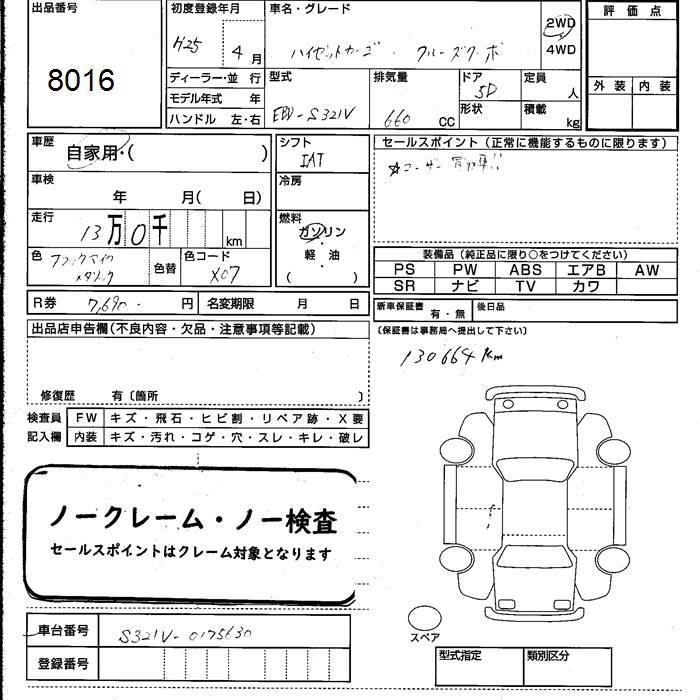 出品番号
8016
初度登録年月
H25 4月
車名・グレード
ハイゼットカーゴ・クルーズターボ
2WD
4WD
評価点
外装 内装
ディーラー・並行
モデル年式 年
ハンドル 左・右
型式
EBD-S321V
排気量
660 CC
ドア
5D
形状
定員
人
積載
kg
車歴
自家用・( )
車検
年 月( 日)
走行
13万0千 km
色
ブラックマイカ
メタリック
色替
色コード
X07
シフト
IAT
冷房
燃料
ガソリン
・
軽油
( )
セールスポイント(正常に機能するものに限ります)
☆ユーザー買取車!!
装備品(純正品に限り○をつけてください)
PS PW ABS エアB AW
SR ナビ TV カワ
R券 7,690- 円 名変期限 月 日
新車保証書
有・無
後日品
(保証書は事務局へ提出して下さい)
出品店申告欄(不良内容・欠品・注意事項等記載)
130664km
修復歴 有〔箇所 〕
検査員
記入欄
FW キズ・飛石・ヒビ割・リペア跡・X要
内装 キズ・汚れ・コゲ・穴・スレ・キレ・破レ
ノークレーム・ノー検査
セールスポイントはクレーム対象となります
車台番号 S321V-0175630
登録番号
スペア
型式指定 類別区分